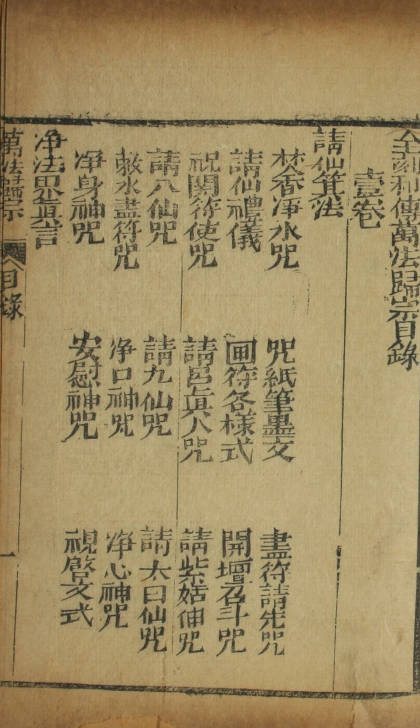 全刻秘傳萬法歸宗目錄
壹卷
請仙箕法
焚香凈水咒
咒紙筆墨文
畫符請先咒
請仙禮儀
画符各樣式
開壇召斗咒
祝闗符使咒
請呂真人咒
請紫姑神咒
請八仙咒
請九仙咒
請太白仙咒
敕水畫符咒
净口神咒
净心神咒
净身神咒
安慰神咒
視啓文式
净法界真言
萬法歸宗
目錄
一